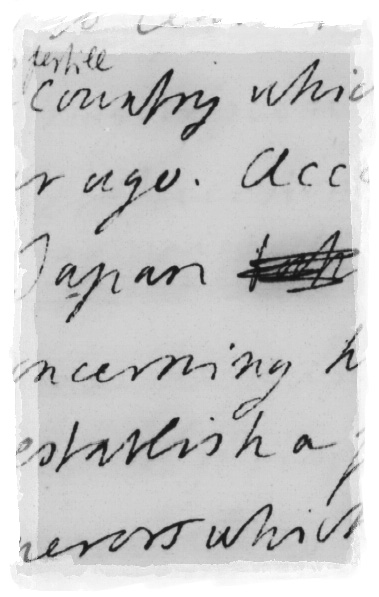 fertile
Country which
r ago. Acc
Japan
oncerning h
establish a
perors which